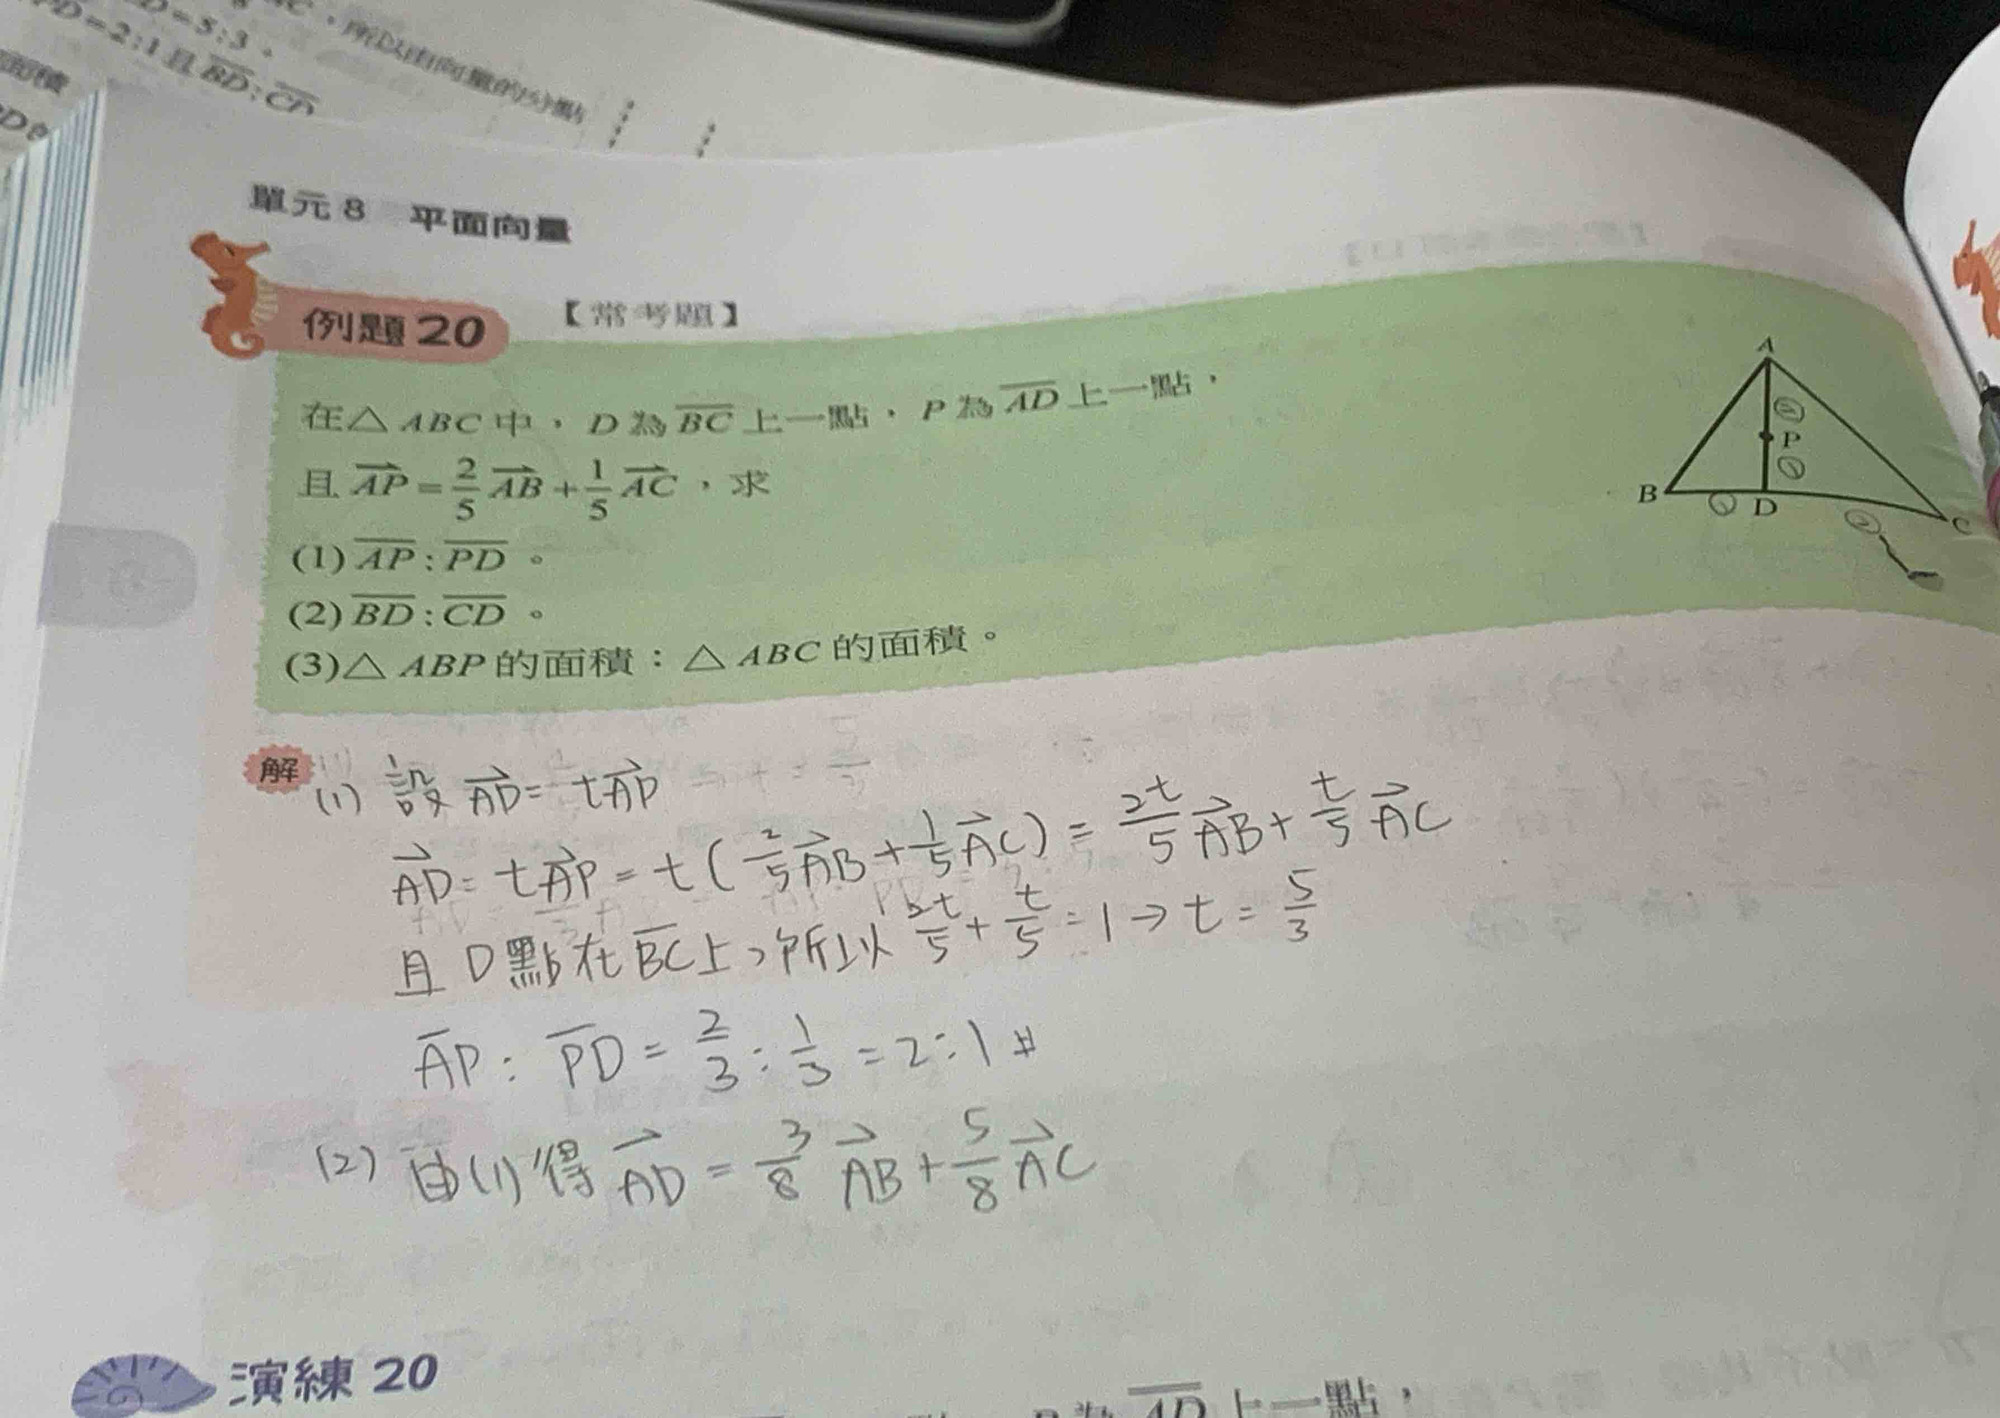 D=5:3。
PD=2:1且BD:CD
，所以由向量的分點
面積
單元8 平面向量
例題20 【常考題】
在△ABC中，D為BC上一點，P為AD上一點，
且AP=2/5AB+1/5AC，求
(1)AP:PD。
(2)BD:CD。
(3)△ABP的面積：△ABC的面積。
A
②
P
①
B
①
D
②
C
解
(1) 設AD=tAP
AD=tAP=t(2/5AB+1/5AC)=2t/5AB+t/5AC
且D點在BC上,所以2t/5+t/5=1→t=5/3
AP:PD=2/3:1/3=2:1#
(2) 由(1)得AD=3/8AB+5/8AC
演練20
為AD上一點，